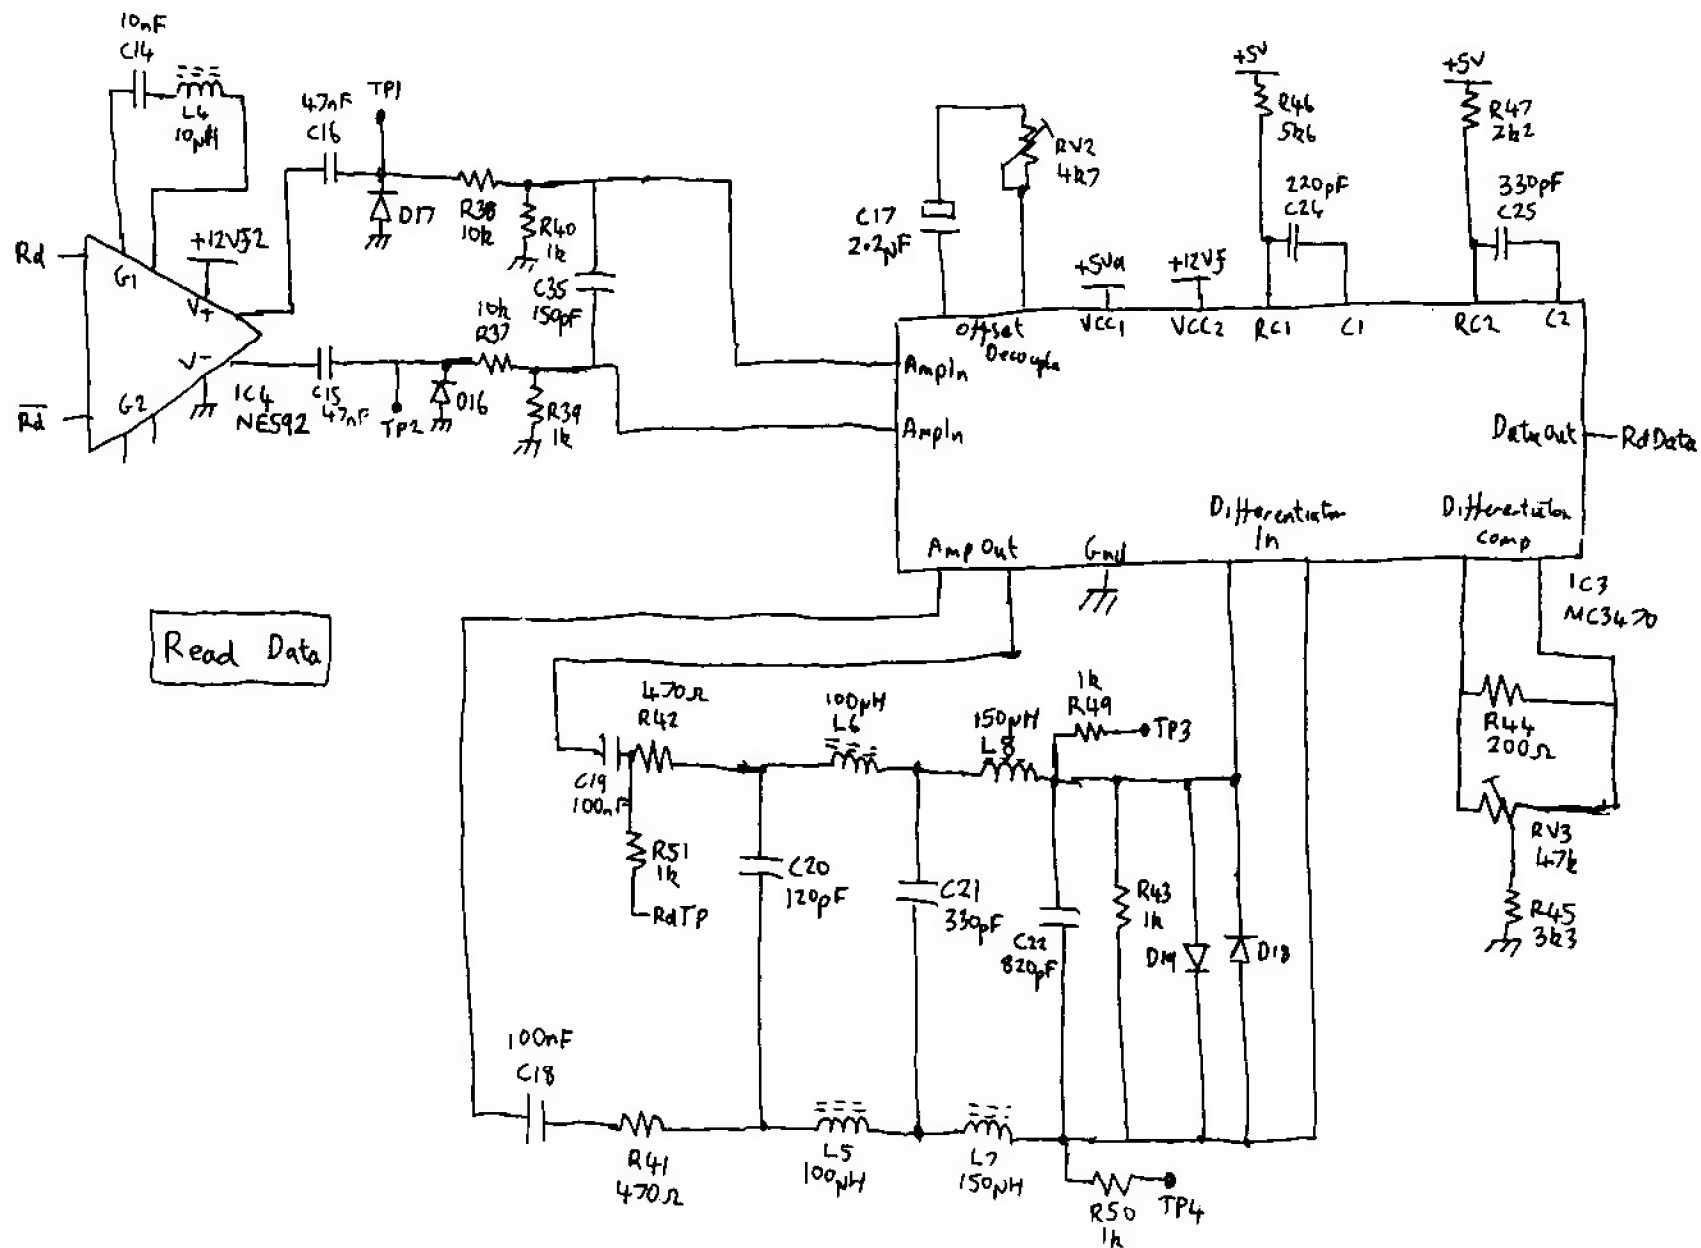 10nF
C14
L4
10µH
47nF
C16
TP1
D17
R38
10k
R40
1k
C35
150pF
Rd
+12Vf2
G1
V+
V-
G2
Rd
IC4
NE592
C15
47nF
TP2
D16
10k
R37
R39
1k
C17
2.2µF
RV2
4k7
+5V
R46
5k6
220pF
C24
+5V
R47
2k2
330pF
C25
+5Va
+12Vf
Offset
Decouple
VCC1
VCC2
RC1
C1
RC2
C2
AmpIn
AmpIn
Data Out
RdData
Amp Out
Gnd
Differentiator
In
Differentiator
comp
IC3
MC3470
Read Data
470Ω
R42
C19
100nF
R51
1k
RdTP
100µH
L6
150µH
L8
1k
R49
TP3
C20
120pF
C21
330pF
C22
820pF
R43
1k
D19
D18
R44
200Ω
RV3
47k
R45
3k3
100nF
C18
R41
470Ω
L5
100µH
L7
150µH
R50
1k
TP4